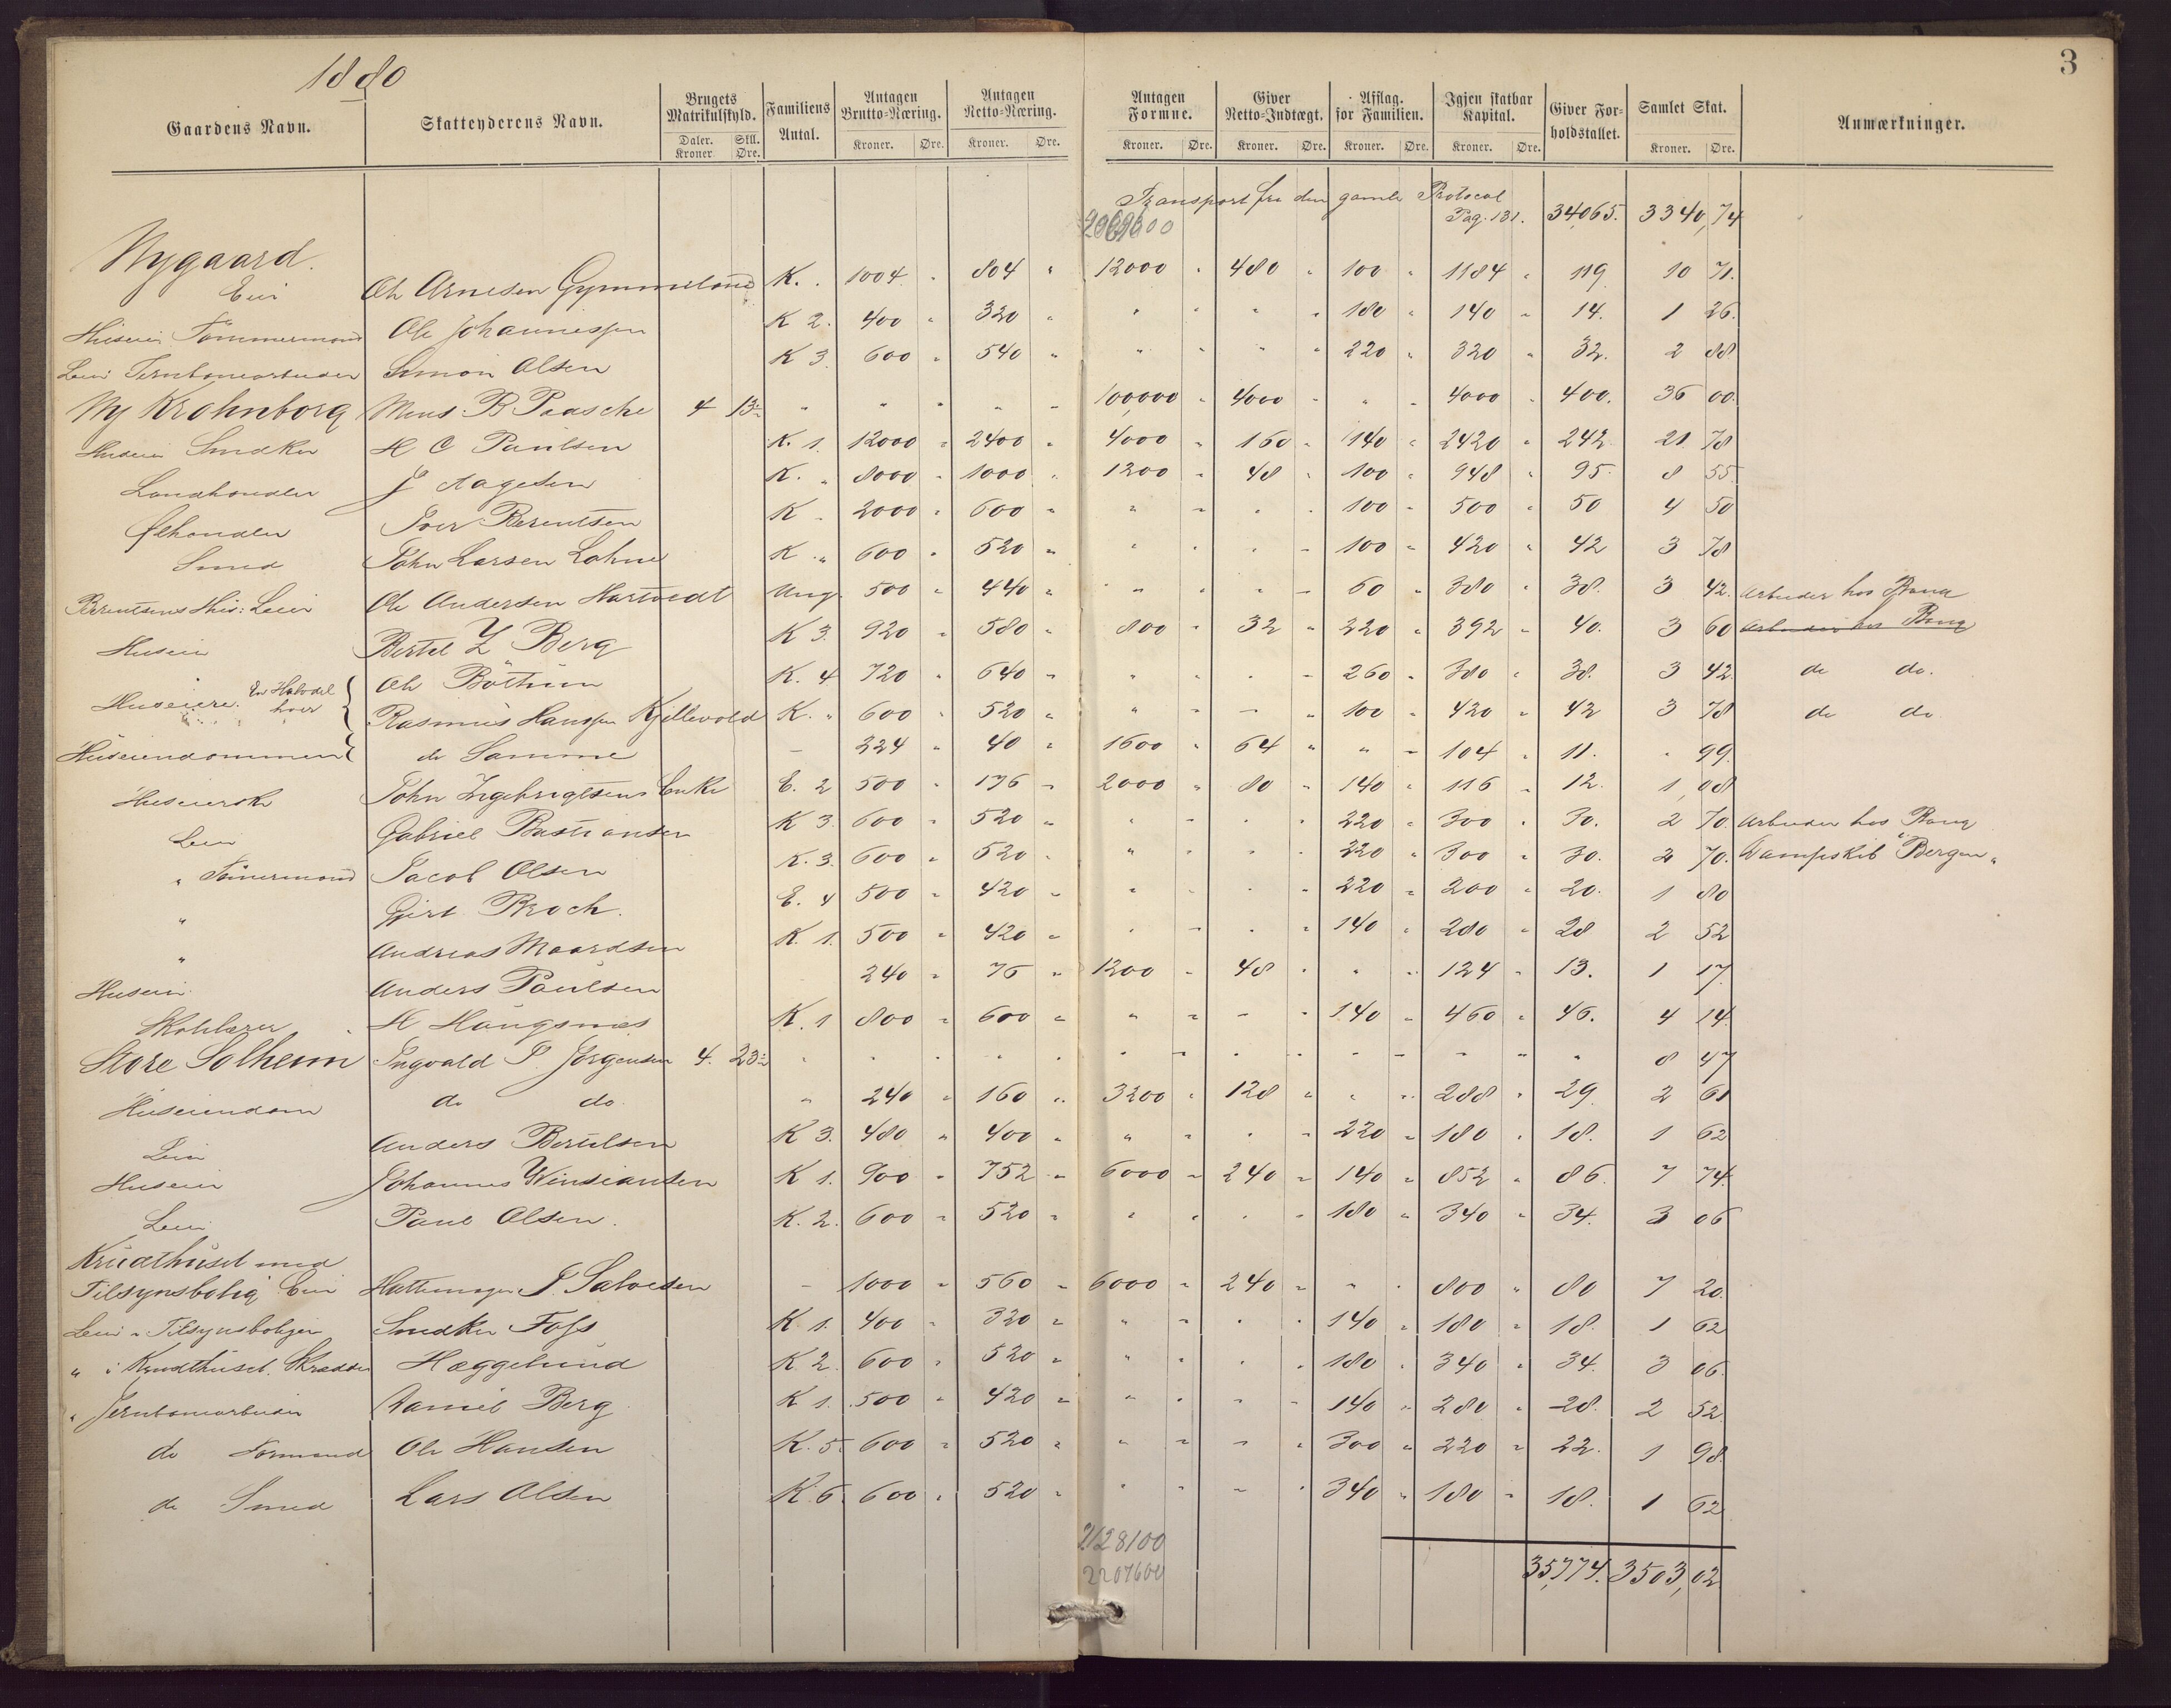 3
1880
Gaardens Navn. Skatteyderens Navn. Brugets Matrikulskyld. Daler. Kroner Skll. Øre. Familiens Antal. Antagen Brutto-Næring. Kroner. Øre. Antagen Netto-Næring. Kroner. Øre. Antagen Formue. Kroner. Øre. Giver Netto-Indtægt. Kroner. Øre. Afslag. for Familien. Kroner. Øre. Igjen skatbar Kapital. Kroner. Øre. Giver Forholdstallet. Samlet Skat. Kroner. Øre. Anmærkninger.
Transport fra den gamle Protocol Pag. 131. 34,065. 3340,74
Nygaard.
Eier Ole Arnesen Gymmeland K. " 1004 " 804 " 12000 " 480 " 100 " 1184 " 119 10 71.
Huseier Tømmermand Ole Johannessen K 2. 400 " 320 " " " " " 180 " 140 " 14. 1 26.
Leier Jernbanearbeider Simon Olsen K 3. 600 " 540 " " " " " 220 " 320 " 32. 2 88
Ny Krohnborg Mons B Paasche 4 13 " " " " " 100,000 " 4000 " " " 4000 " 400. 36 00.
Huseier Snedker H C Paulsen K. 1. 12000 " 2400 " 4000 " 160 " 140 " 2420 " 242 21 78
Landhandler J Aagesen K. " 8000 " 1000 " 1200 " 48 " 100 " 948 " 95 8 55
Ølhandler Iver Berentsen K " 2000 " 600 " " " " " 100 " 500 " 50 4 50
Smed John Larsen Lohne K " 600 " 520 " " " " " 100 " 420 " 42 3 78
Berentsens Hus: Leier Ole Andersen Hartvedt Ung. 500 " 440 " " " " " 60 " 380 " 38. 3 42. Arbeider hos
Huseier Bertel Z Berg K 3. 920 " 580 " 800 " 32 " 220 " 392 " 40. 3 60 Arbeider hos
Huseiere. En Halvdel hver Ole Bøthun K. 4 720 " 640 " " " " " 260 " 380 " 38. 3 42 do do.
Rasmus Hanssen Kjellevold K. " 600 " 520 " " " " " 100 " 420 " 42 3 78 do do
Huseiendommen de Samme - 224 " 40 " 1600 " 64 " " " 104 " 11. " 99.
Huseierske John Ingebrigtsens Enke E. 2 500 " 176 " 2000 " 80 " 140 " 116 " 12. 1,08
Leier Gabriel Bastiansen K 3. 600 " 520 " " " " " 220 " 300 " 30. 2 70. Arbeider hos
" Tømermand Jacob Olsen K. 3. 600 " 520 " " " " " 220 " 300 " 30. 2 70. Dampskib "Bergen"
" Gjert Broch. E. 4 500 " 420 " " " " " 220 " 200 " 20. 1 80
" Andreas Maardsen K. 1. 500 " 420 " " " " " 140 " 280 " 28 2 52
Huseier Anders Paulsen 240 " 76 " 1200 " 48 " " " 124 " 13. 1 17
Skolelærer H Haugsnæs K. 1 800 " 600 " " " " " 140 " 460 " 46. 4 14.
Store Solheim Ingvald P. Jørgensen 4. 23 " " " " " " " " " " " " " " 8 47
Huseiendom do do " 240 " 160 " 3200 " 128 " " " 288 " 29 2 61
Leier Anders Bertelsen K 3. 480 " 400 " " " " " 220 " 180 " 18. 1 62
Huseier Johannes Windiansen K 1. 900 " 752 " 6000 " 240 " 140 " 852 " 86 7 74.
Leier Paul Olsen. K. 2. 600 " 520 " " " " " 180 " 340 " 34. 3 06
Krudthuset med
Tilsynsbolig Eier Hattemager P. Salvesen - 1000 " 560 " 6000 " 240 " " " 800 " 80 7 20.
Leier i Tilsynsboligen Snedker Foss K 1. 400 " 320 " " " " " 140 " 180 " 18. 1 62
" i Krudthuset. Skrædder Hæggelund K 2. 600 " 520 " " " " " 180 " 340 " 34. 3 06.
" Jernbanearbeider Daniel Berg K 1. 500 " 420 " " " " " 140 " 280 " 28. 2 52.
do Formand Ole Hansen K. 5. 600 " 520 " " " " " 300 " 220 " 22. 1 98.
do Smed Lars Olsen K. 6. 600 " 520 " " " " " 340 " 180 " 18. 1 62
2128100
2207600
35,774. 3503,02